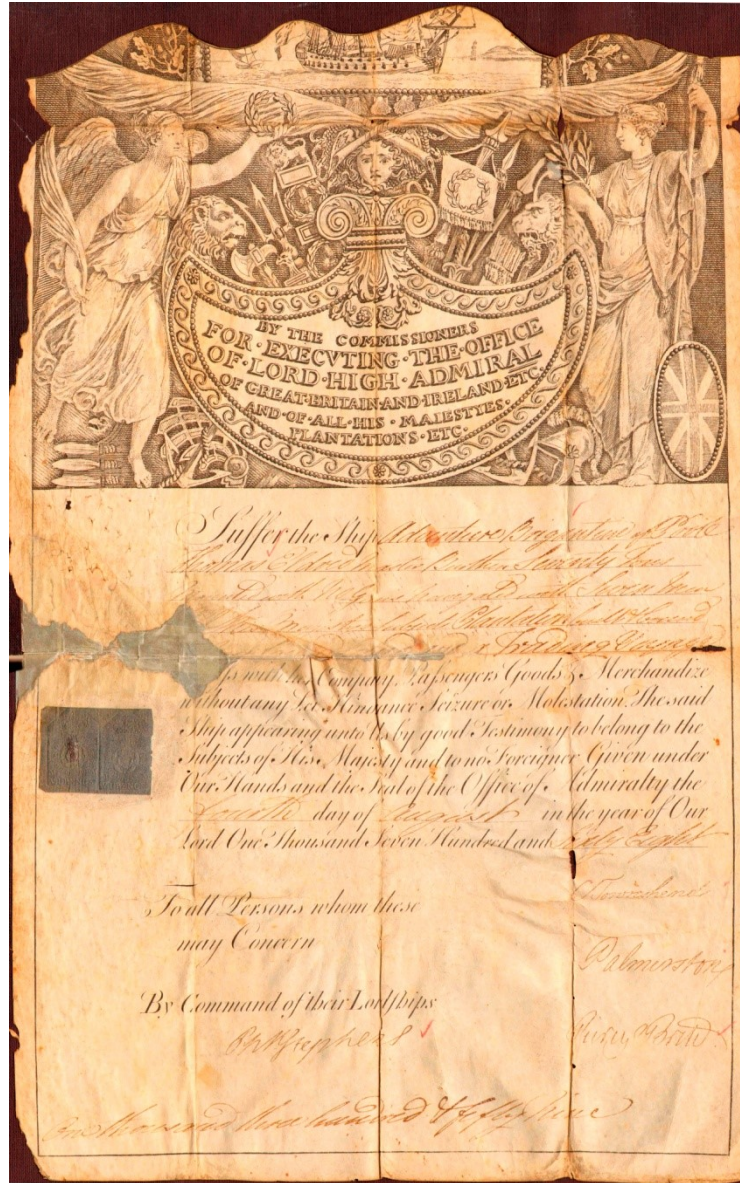 BY THE COMMISSIONERS
FOR·EXECVTING·THE·OFFICE
OF·LORD·HIGH·ADMIRAL
OF·GREAT·BRITAIN·AND·IRELAND·ETC
AND·OF·ALL·HIS·MAJESTYES·
PLANTATIONS·ETC·
Suffer the Ship Adventure Brigantine of Poole
Thomas Eldred Master Burthen Seventy Tons
with Seven Men
Plantation
Trading Voyage
with her Company, Passengers Goods & Merchandize
without any Let Hindance Seizure or Molestation The said
Ship appearing unto Us by good Testimony to belong to the
Subjects of His Majesty and to no Foreigner Given under
Our Hands and the Seal of the Office of Admiralty the
Fourth day of August in the year of Our
Lord One Thousand Seven Hundred and Sixty Eight
To all Persons whom these
may Concern
Palmerston
By Command of their Lordships
Php Stephens
One thousand three hundred & fifty Nine